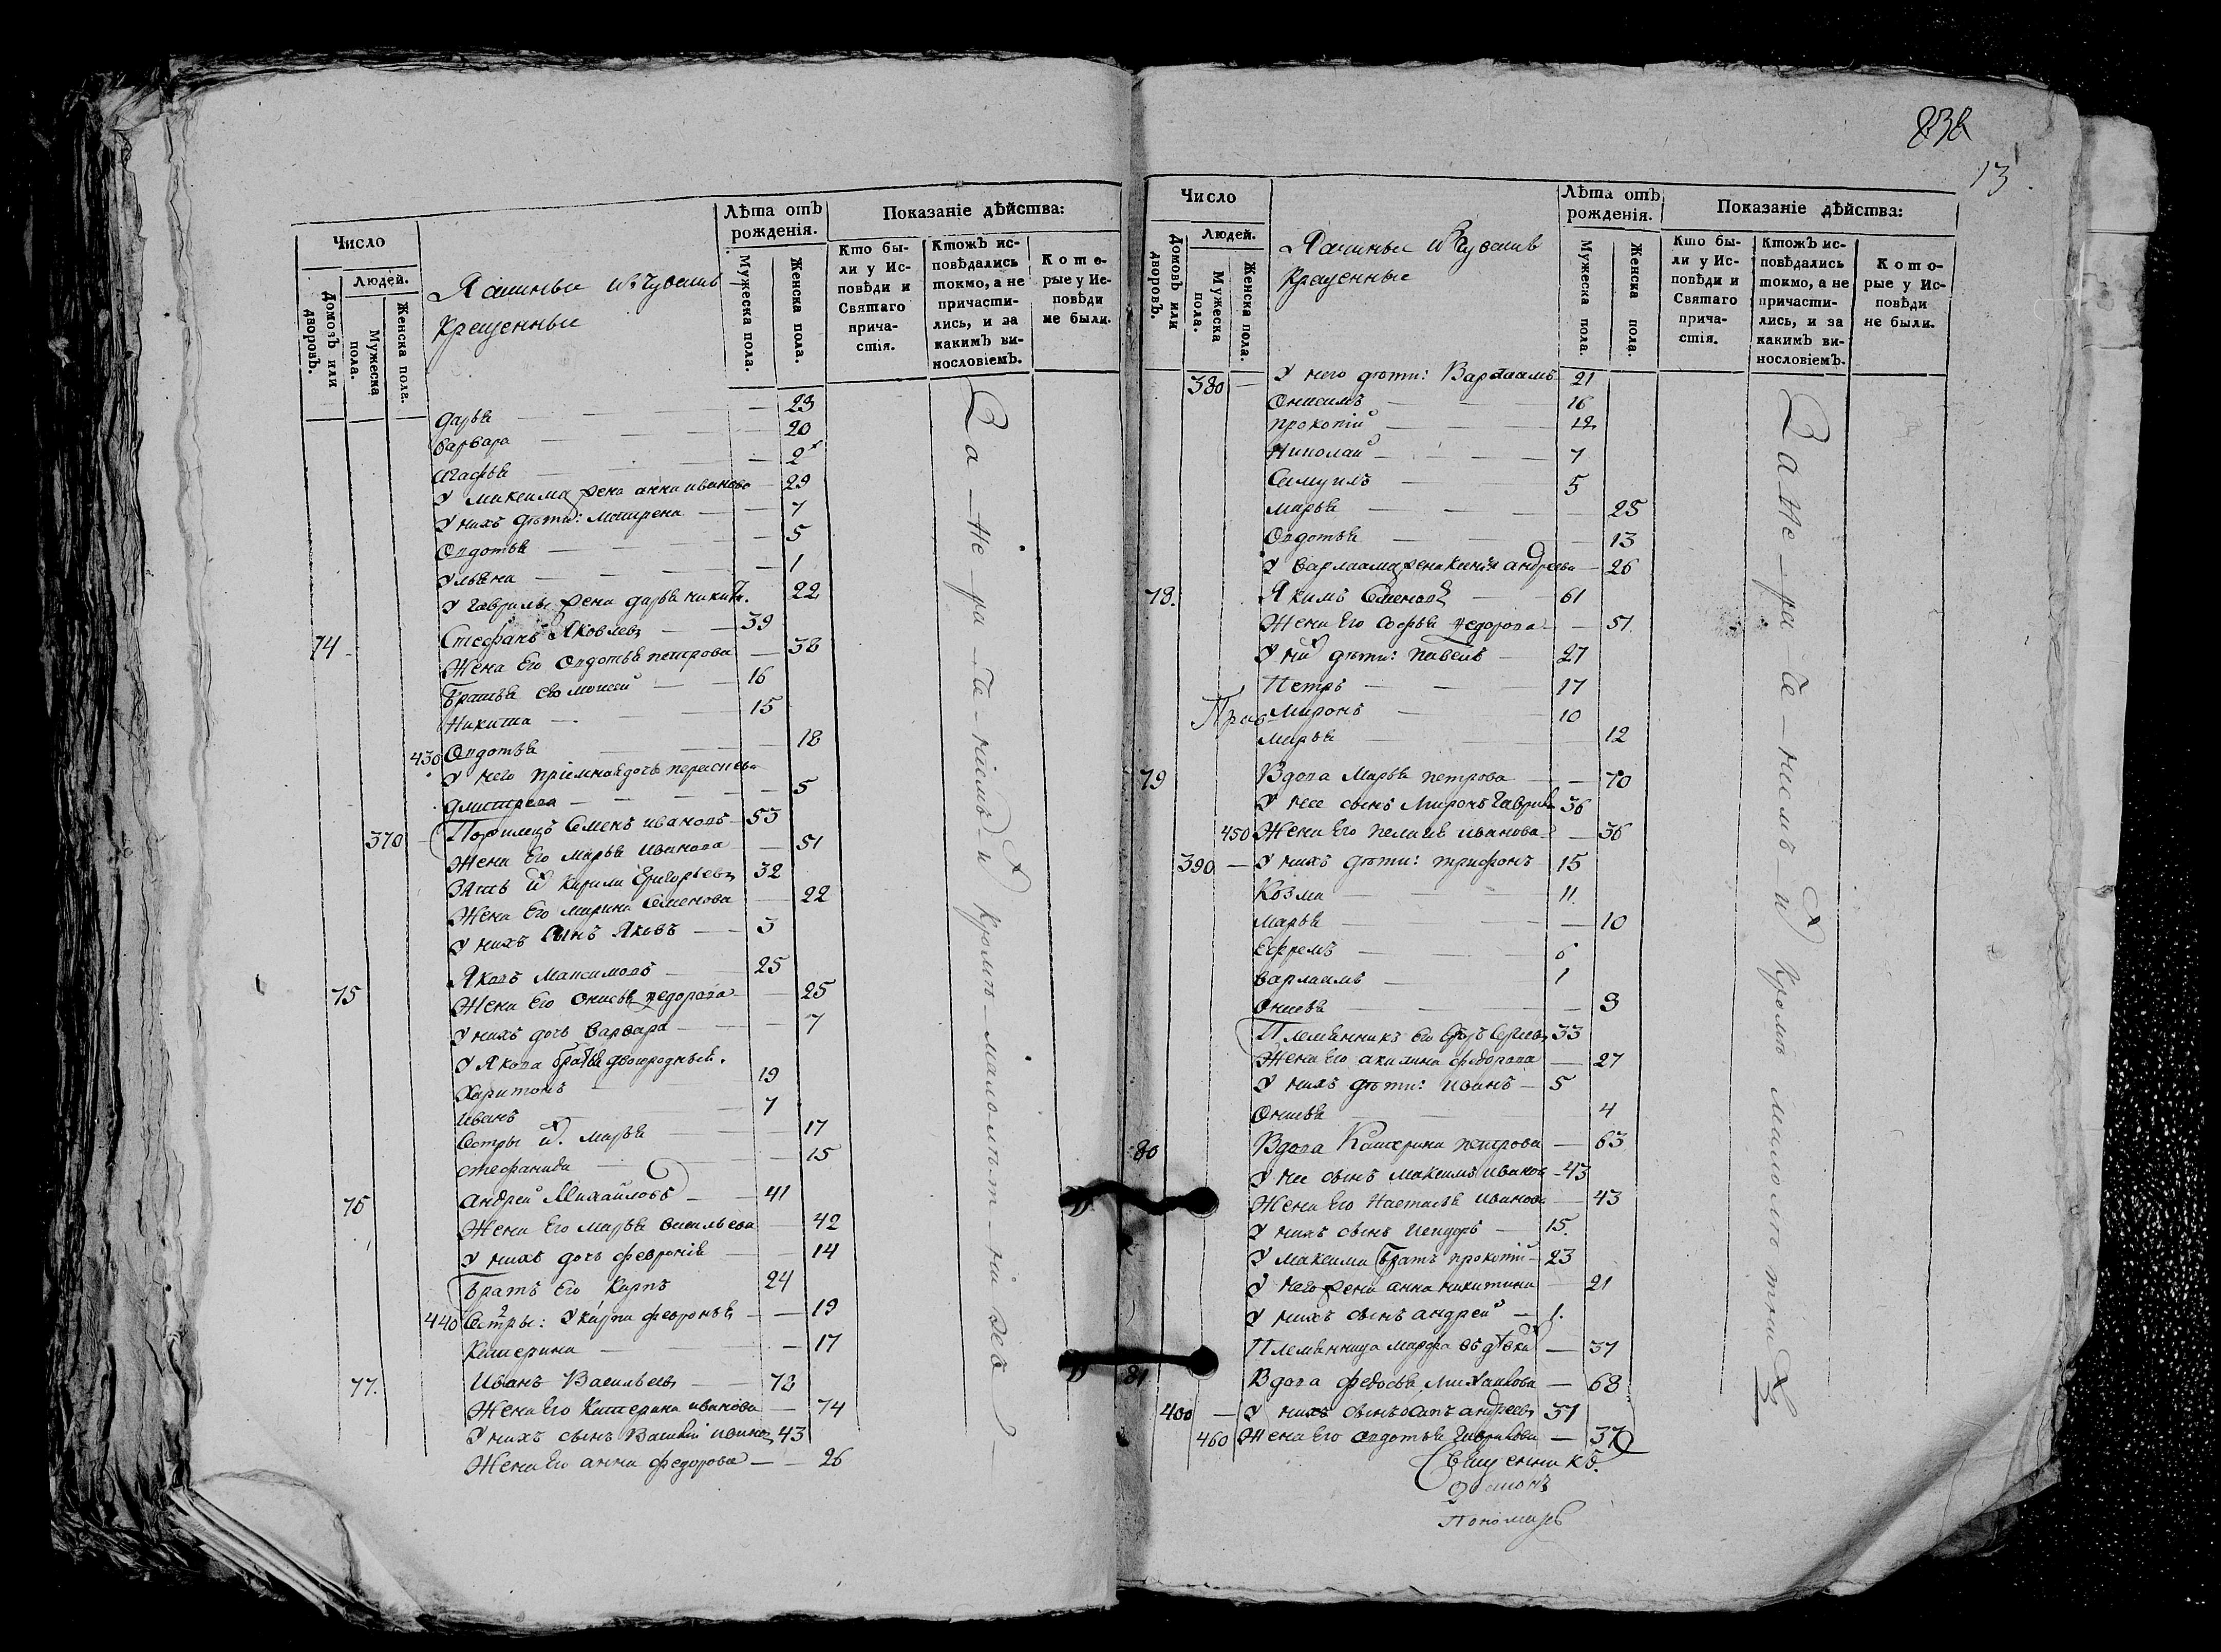 Число
Людей.
Домовъ или дворовъ.
Мужеска пола.
Женска пола.
крещенные
Лѣта отъ рожденія.
Мужеска пола.
Женска пола.
Показаніе дѣйства:
Кто бы-
ли у Ис-
повѣди и
Святаго
прича-
стія.
Ктожъ ис-
повѣдались
токмо, а не
причасти-
лись, и за
какимъ ви-
нословіемъ.
Кото-
рые у Ис-
повѣди
не были.
дарья 23
варвара 20
агафья 2
У максима жена анна иванова 29
У нихъ дѣти: матрена 7
Овдотья 5
Ульяна 1
У гаврилы жена дарья никит. 22
74 Стефанъ Яковлевъ 39
Жена Его Овдотья петрова 38
Братья его моисей 16
Никита 15
430 Овдотья 18
У него пріемная дочь
дмитрева 5
370 Семенъ ивановъ 53
Жена Его Марья Иванова 51
Зять их Кирила Григорьевъ 32
Жена Его марина Семенова 22
У нихъ Сынъ Яковъ 3
75 Яковъ Максимовъ 25
Жена Его Онисья федорова 25
У нихъ дочь варвара 7
У Якова братья двоюродныя.
Харитонъ 19
Иванъ 7
Сестры их. Марья 17
стефанида 15
76 андрей Михайловъ 41
Жена Его марья васильева 42
У нихъ дочь февронія 14
Братъ Его Карпъ 24
440 Сестры: У карпа февронья 19
Катерина 17
77. Иванъ Васильевъ 78
Жена Его Катерина иванова 74
У нихъ сынъ Василій иванов 43
Жена Его анна федорова 26
За не ра че ніемъ и кромѣ малолѣт
838
13
Число
Людей.
Домовъ или дворовъ.
Мужеска пола.
Женска пола.
крещенные
Лѣта отъ рожденія.
Мужеска пола.
Женска пола.
Показаніе дѣйства:
Кто бы-
ли у Ис-
повѣди и
Святаго
прича-
стія.
Ктожъ ис-
повѣдались
токмо, а не
причасти-
лись, и за
какимъ ви-
нословіемъ.
Кото-
рые у Ис-
повѣди
не были.
380 У него дѣти: Варлаамъ 21
Онисимъ 16
прокопій 12
Николай 7
Самуилъ 5
марья 25
Овдотья 13
У варлаама жена Ксенія андреева 26
78. Якимъ Семеновъ 61
Жена Его Софья федорова 51
У них дѣти: павелъ 27
Петръ 17
Миронъ 10
Марья 12
79 Вдова Марья петрова 70
У нее сынъ Миронъ Гаврилов 36
450 Жена Его иванова 36
390 У нихъ дѣти: трифонъ 15
Козма 11
Марья 10
Ефремъ 6
варлаамъ 1
Онисья 3
Племянникъ Его 33
Жена Его акилина федорова 27
У нихъ дѣти: Иванъ 5
Онисья 4
80 Вдова Катерина петрова 63
У нее сынъ максимъ иванов 43
Жена Его Настасья иванова 43
У нихъ сынъ 15.
У максима братъ прокопій 23
У него жена анна никитина 21
У нихъ сынъ андрей 1.
Племянница марфа въ дѣвках 37
81 Вдова федосья Михайлова 68
400 У нихъ сынъ андреевъ 37
460 Жена Его овдотья Гаврилова 37
За не ра че ніемъ и кромѣ малолѣтних
Священникъ
Пономарь